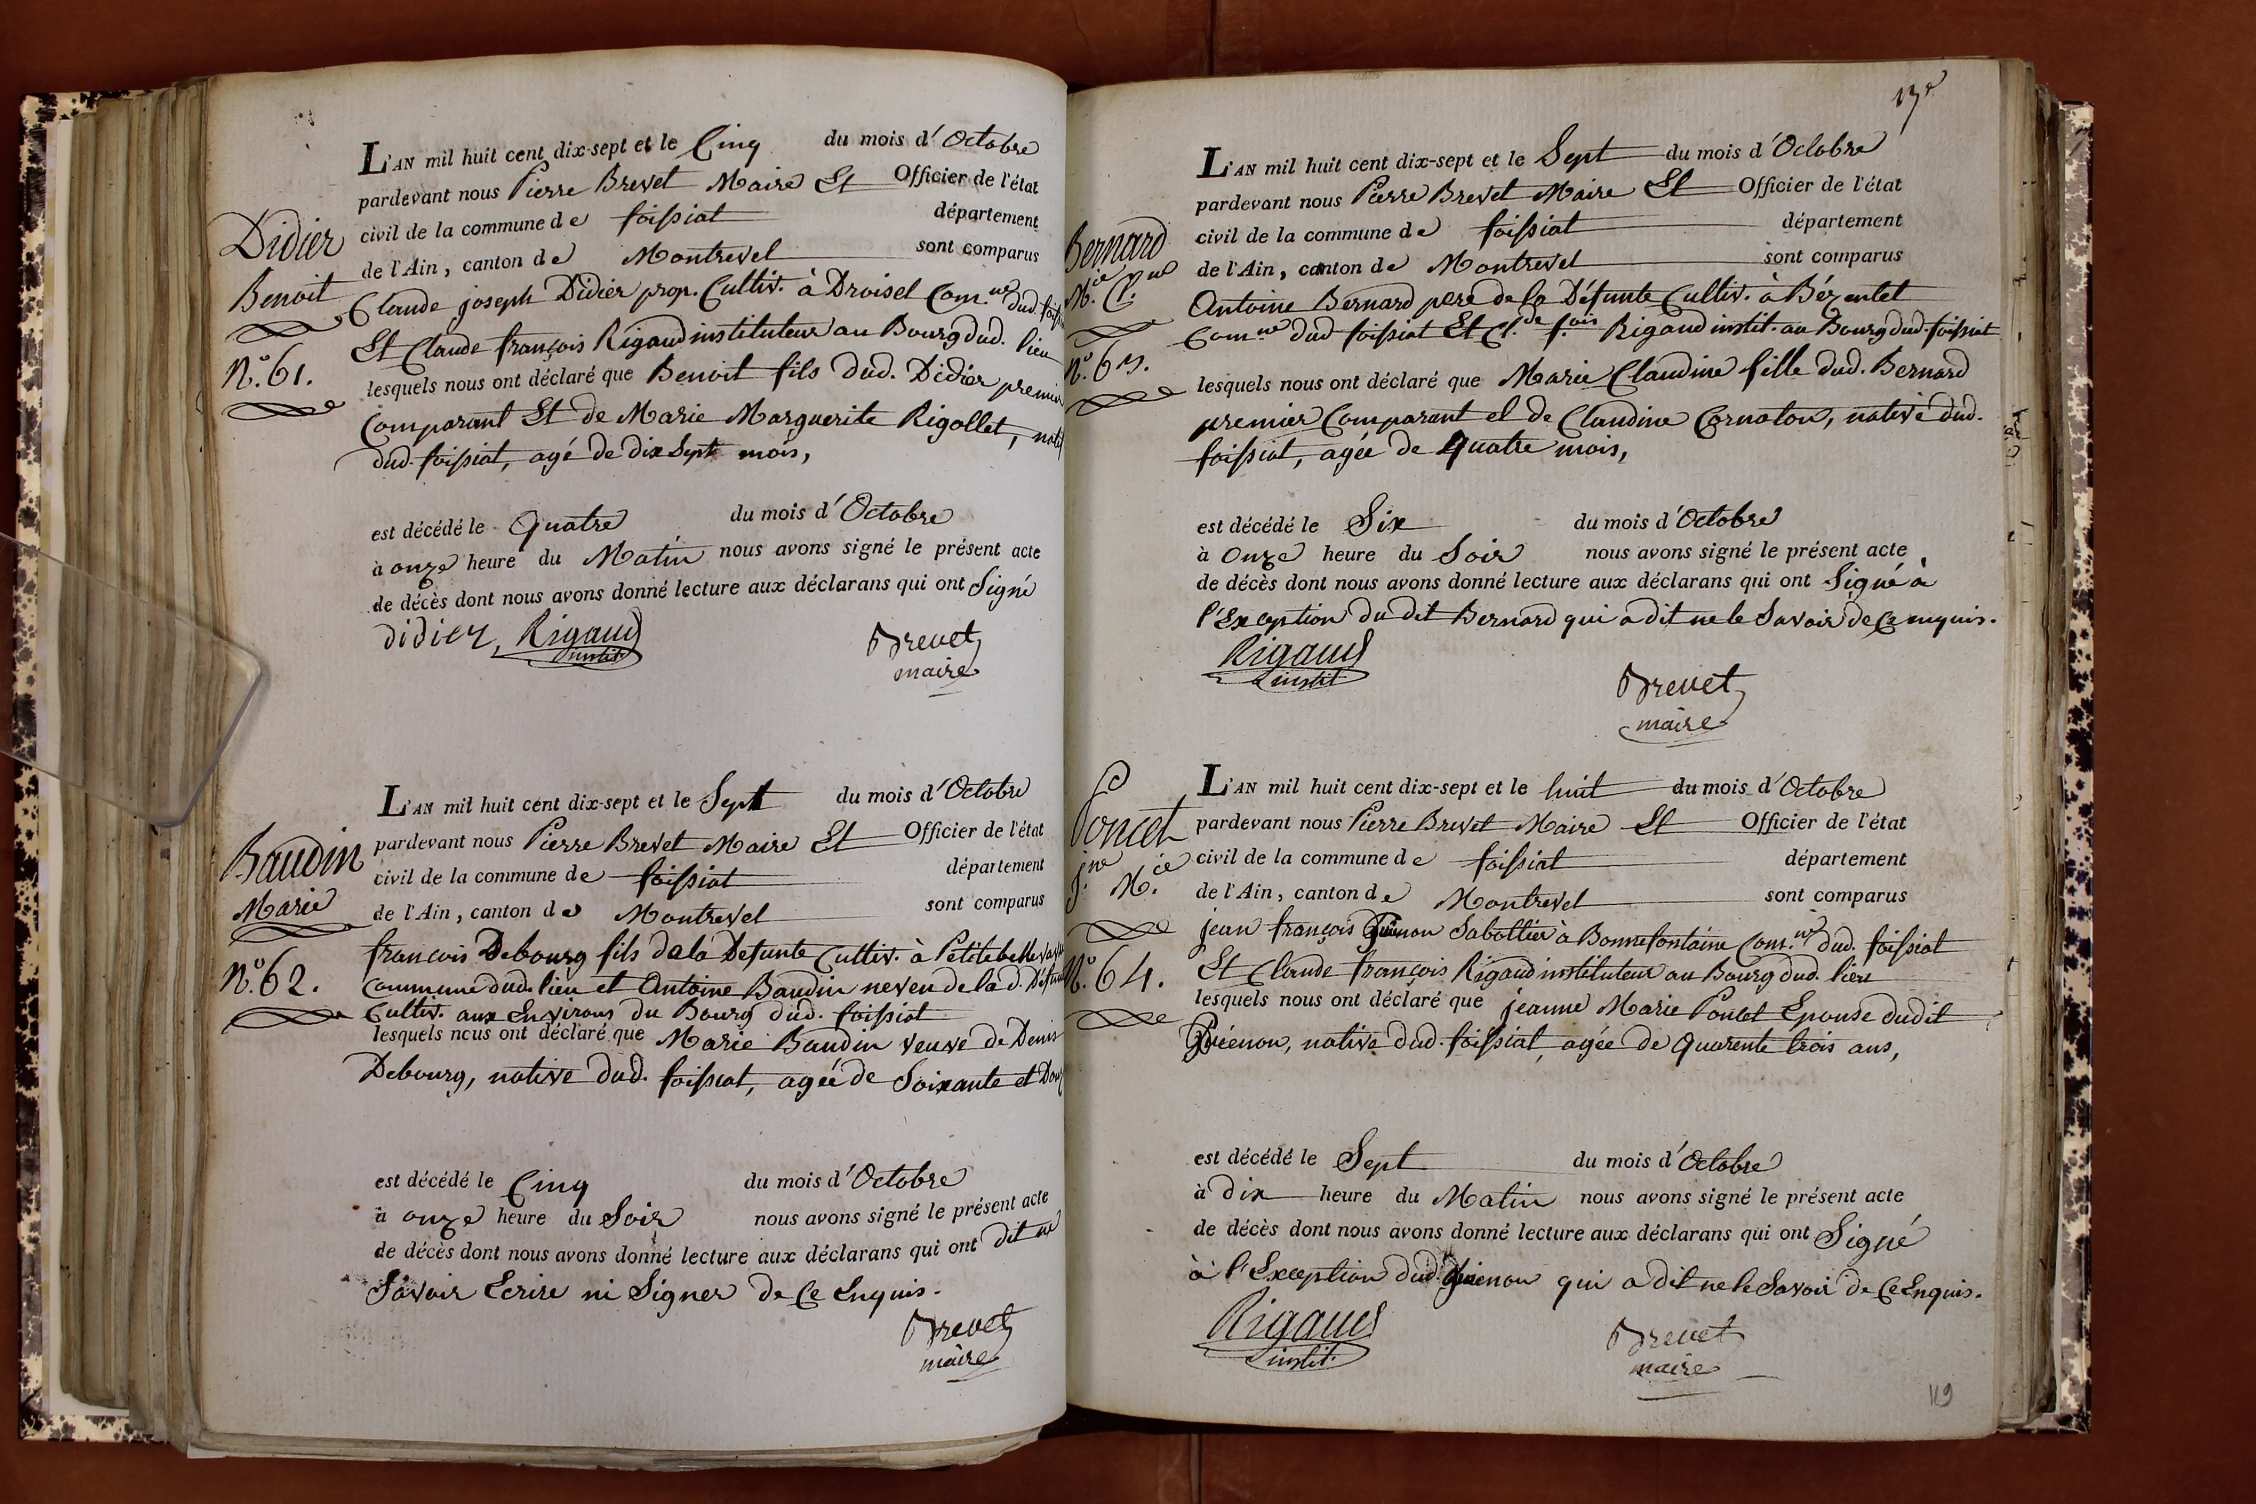 L'AN mil huit cent dix-sept et le Cinq du mois d'Octobre
pardevant nous Pierre Brevet Maire Et Officier de l'état
civil de la commune de foissiat département
de l'Ain, canton de Montrevel sont comparus
Didier
Benoit
N.° 61.
Claude joseph Didier prop. Cultiv. à Droisel Com.ne dud. foiss
Et Claude françois Rigaud instituteur au Bourg dud. lieu
lesquels nous ont déclaré que Benoit fils dud. Didier premier
Comparant Et de Marie Marguerite Rigollet, natif
dud. foissiat, agé de dix Sept mois,
est décédé le Quatre du mois d'Octobre
à onze heure du Matin nous avons signé le présent acte
de décès dont nous avons donné lecture aux déclarans qui ont Signé
didier, Rigaud
instit.
Brevet
maire
L'AN mil huit cent dix-sept et le Sept du mois d'Octobre
pardevant nous Pierre Brevet Maire Et Officier de l'état
civil de la commune de foissiat département
de l'Ain, canton de Montrevel sont comparus
Baudin
Marie
N.° 62.
francois Debourg fils de la Defunte Cultiv. à Petitebelle
Commune dud. lieu et Antoine Baudin neveu de la d. Défunte
Cultiv. aux Environs du Bourg dud. foissiat
lesquels nous ont déclaré que Marie Baudin veuve de Denis
Debourg, native dud. foissiat, agée de Soixante et Douz
est décédé le Cinq du mois d'Octobre
à onze heure du Soir nous avons signé le présent acte
de décès dont nous avons donné lecture aux déclarans qui ont dit ne
Savoir Ecrire ni Signer de Ce Enquis.
Brevet
maire
L'AN mil huit cent dix-sept et le Sept du mois d'Octobre
pardevant nous Pierre Brevet Maire Et Officier de l'état
civil de la commune de foissiat département
de l'Ain, canton de Montrevel sont comparus
Bernard
M.ie Cl.ne
N.° 63.
Antoine Bernard pere de la Défunte Cultiv. à Bézentet
Com.ne dud foissiat Et Cl.de f.ois Rigaud instit. au Bourg dud. foissiat
lesquels nous ont déclaré que Marie Claudine fille dud. Bernard
premier Comparant et de Claudine Cornaton, native dud.
foissiat, agée de Quatre mois,
est décédé le Six du mois d'Octobre
à Onze heure du Soir nous avons signé le présent acte
de décès dont nous avons donné lecture aux déclarans qui ont Signé à
l'Exception du dit Bernard qui a dit ne le Savoir de Ce enquis.
Rigaud
instit
Brevet
maire
L'AN mil huit cent dix-sept et le huit du mois d'Octobre
pardevant nous Pierre Brevet Maire Et Officier de l'état
civil de la commune de foissiat département
de l'Ain, canton de Montrevel sont comparus
Poncet
j.ne M.ie
N.° 64.
jean françois Guénon Sabottier à Bonnefontaine Com.ne dud. foissiat
Et Claude françois Rigaud instituteur au Bourg dud. lieu
lesquels nous ont déclaré que jeanne Marie Poncet Epouse dudit
Guénon, native dud. foissiat, agée de Quarente trois ans,
est décédé le Sept du mois d'Octobre
à dix heure du Matin nous avons signé le présent acte
de décès dont nous avons donné lecture aux déclarans qui ont Signé
à l'Exception dud. Guénon qui a dit ne le Savoir de Ce Enquis.
Rigaud
instit.
Brevet
maire
119